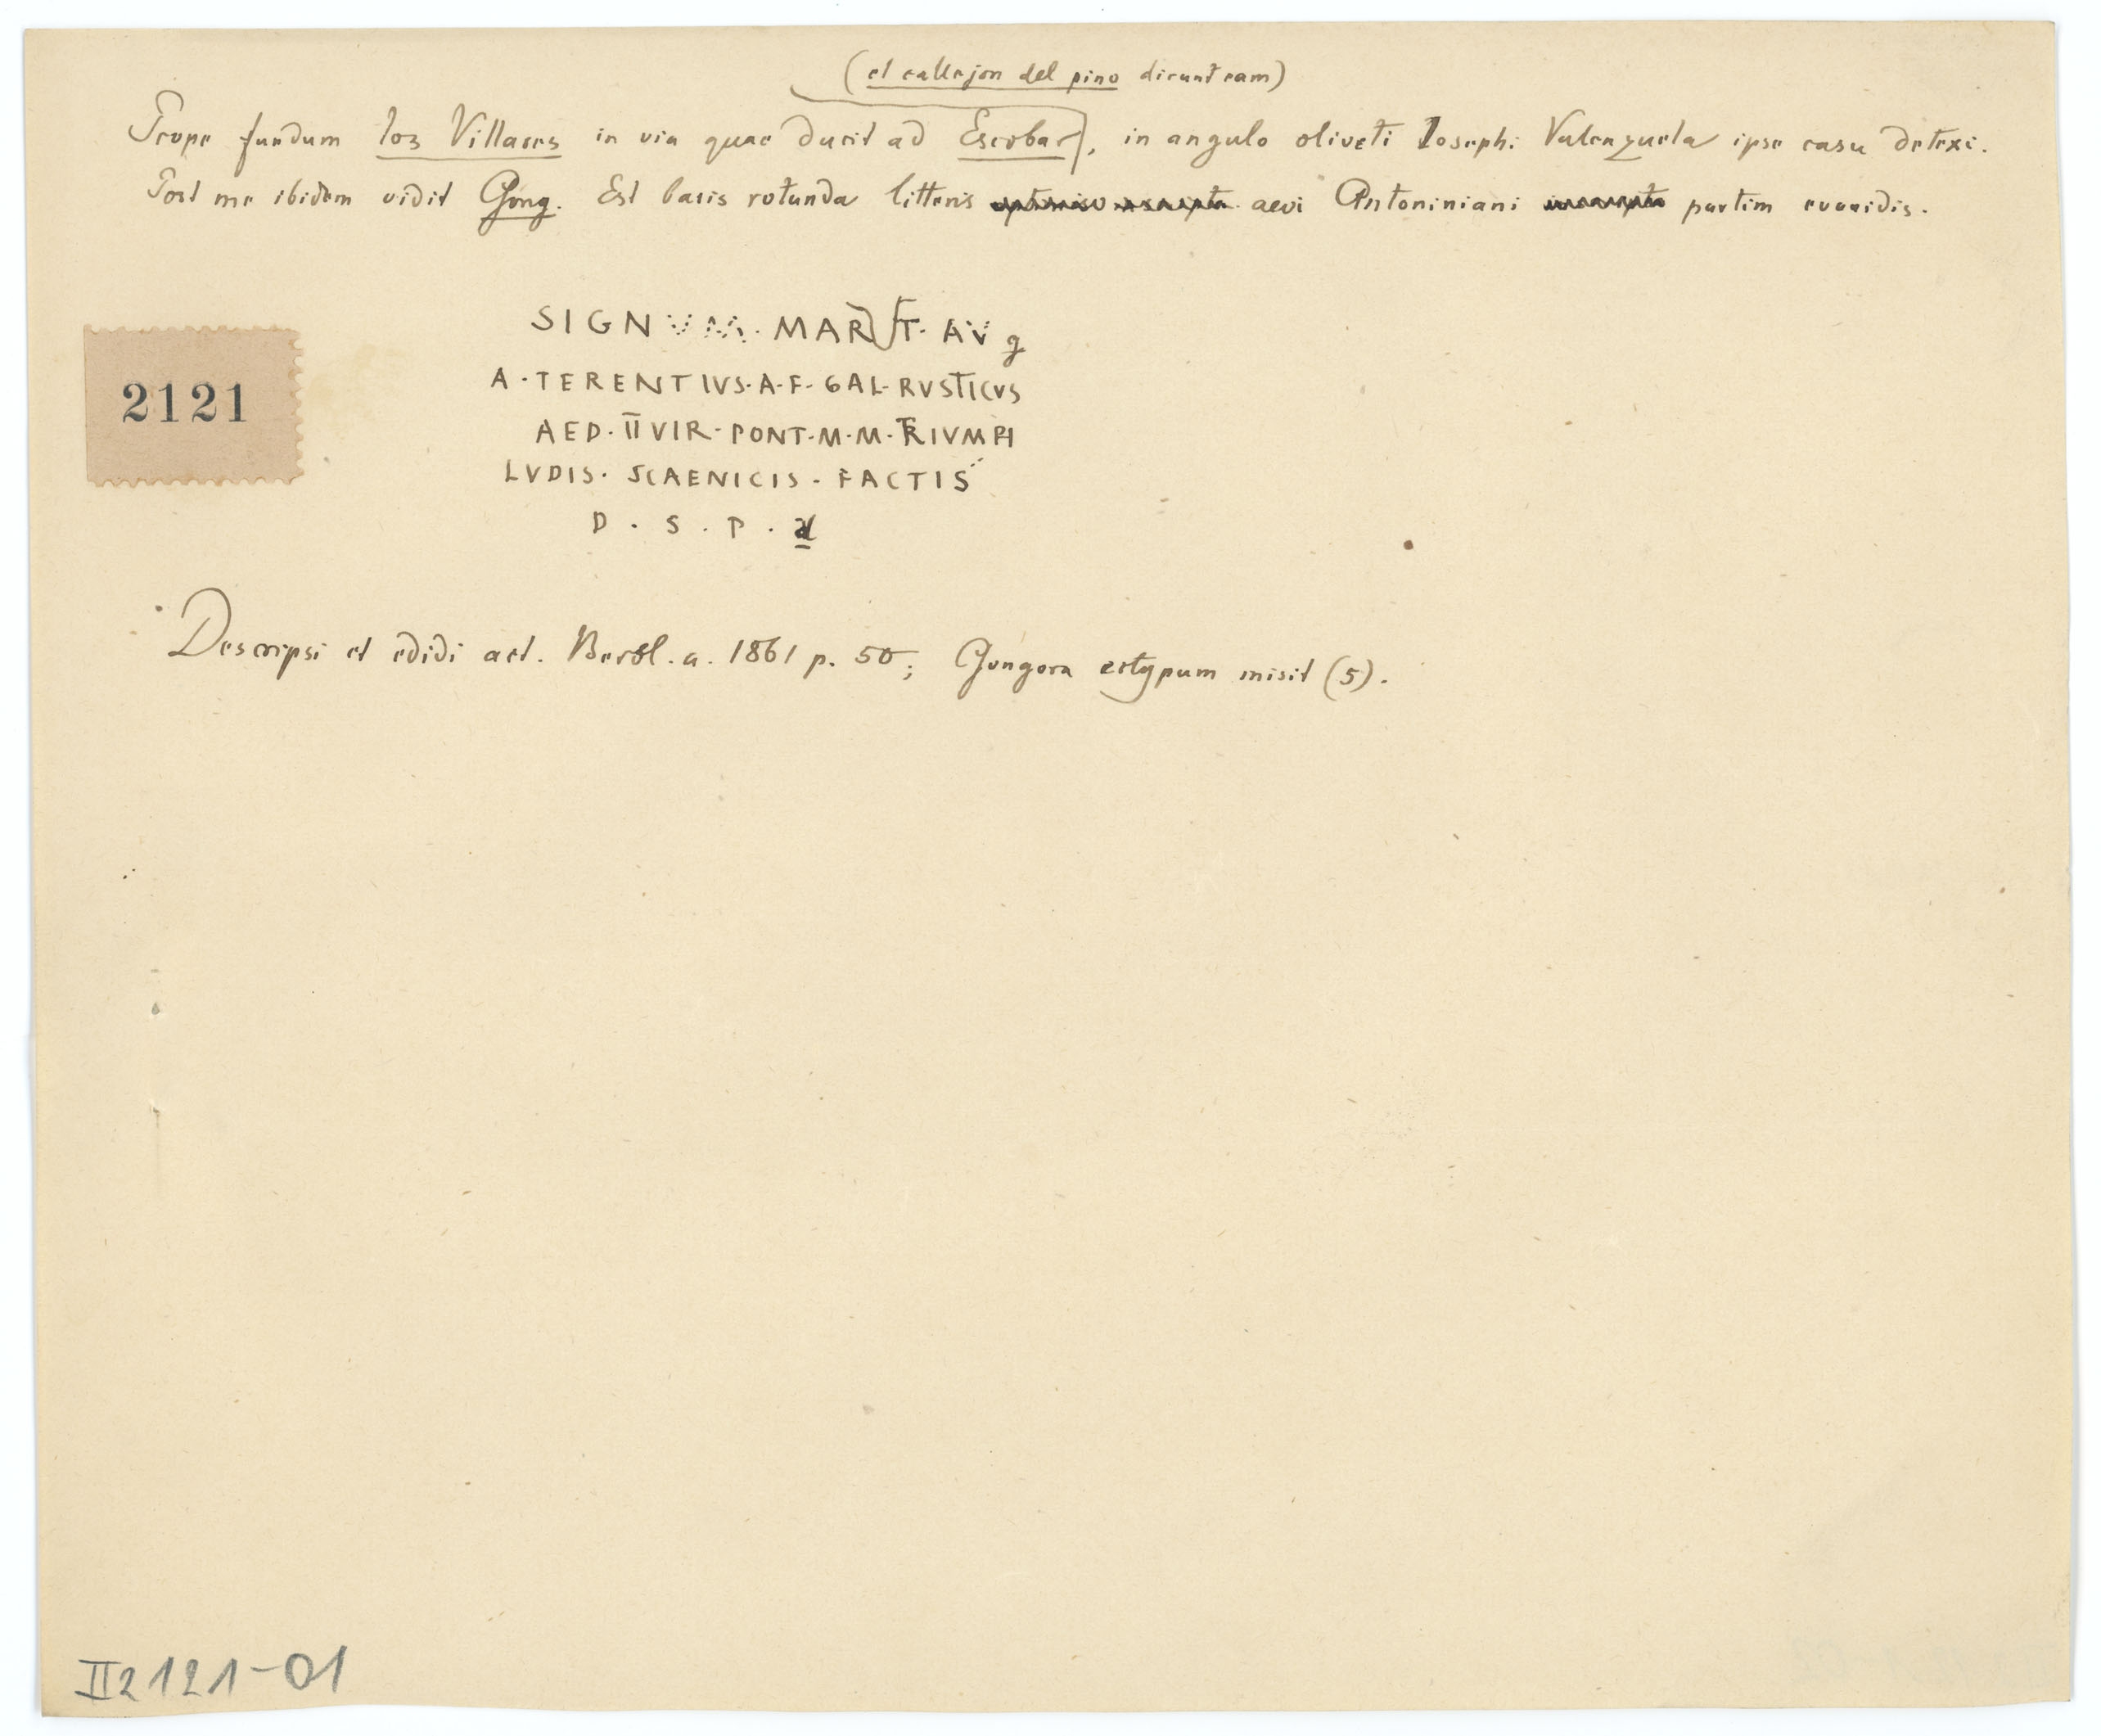 (el callejon del pino dicunt eam)
Prope fundum los Villares in via quae ducit ad Escobar, in angulo oliveti Iosephi Valenzuela ipse casu detexi.
Post me ibidem vidit Gong. Est basis rotunda litteris aevi Antoniniani partim evanidis.
2121
SIGNVM · MART · AVg
A · TERENTIVS · A · F · GAL · RVSTICVS
AED · IIVIR · PONT · M · M · TRIVMPH
LVDIS · SCAENICIS · FACTIS
D · S · P · d
Descripsi et edidi act. Berol. a. 1861 p. 50; Gongora ectypum misit (5).
II 2121-01